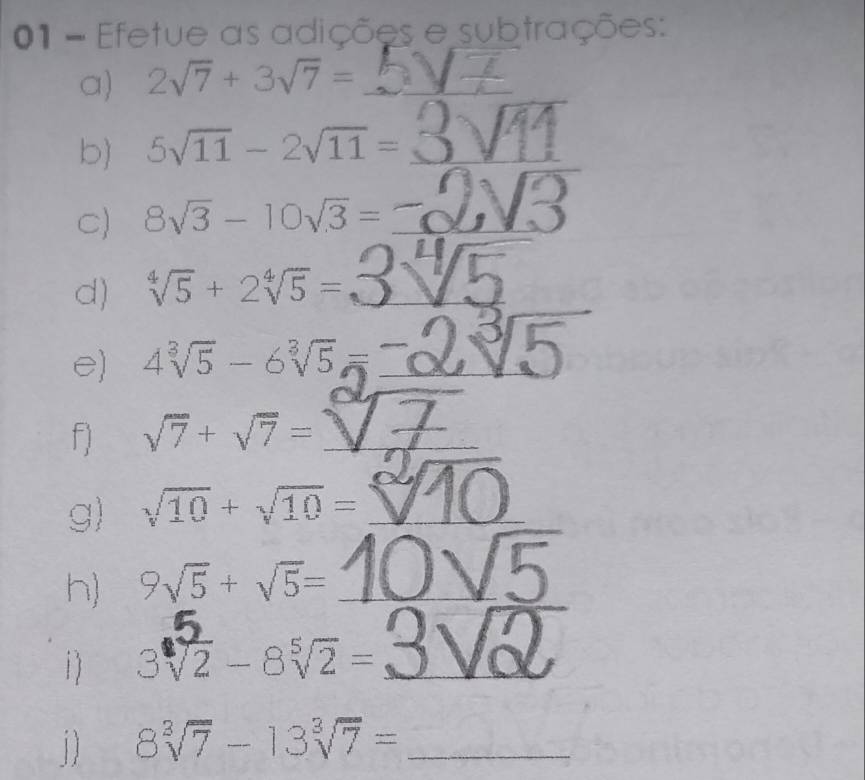 01 - Efetue as adições e subtrações:
a) 2√7 + 3√7 = 5√7
b) 5√11 - 2√11 = 3√11
c) 8√3 - 10√3 = -2√3
d) ∜5 + 2∜5 = 3∜5
e) 4∛5 - 6∛5 = -2∛5
f) √7 + √7 = ²√7
g) √10 + √10 = ²√10
h) 9√5 + √5 = 10√5
i) 3⁵√2 - 8⁵√2 = 3√2
j) 8∛7 - 13∛7 =